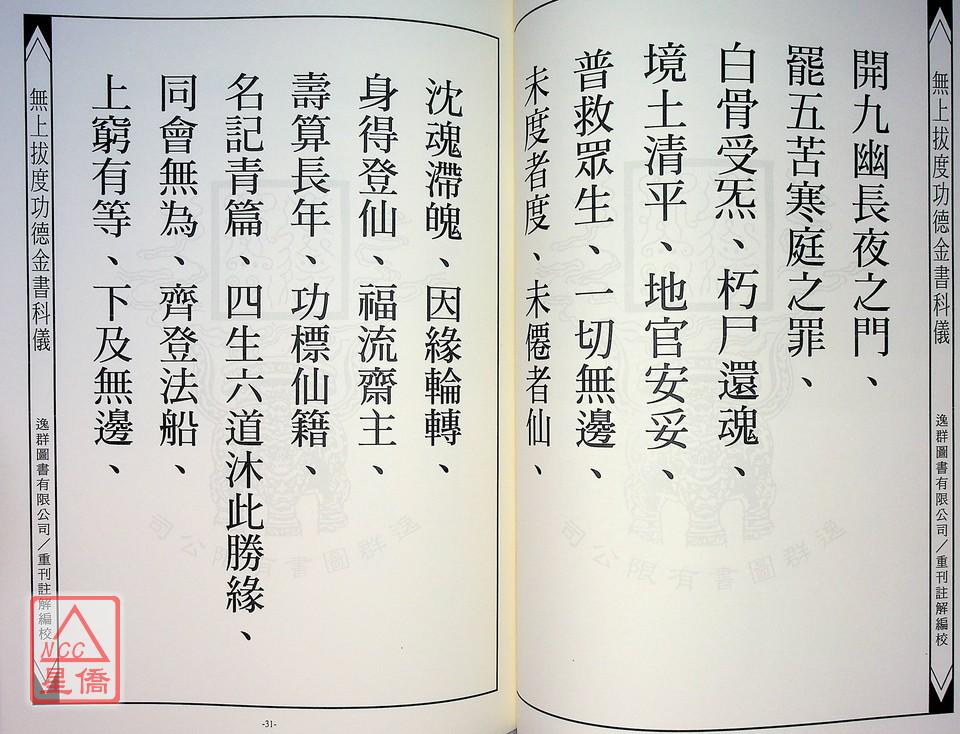 無上拔度功德金書科儀
逸群圖書有限公司／重刊註解編校
開九幽長夜之門、
罷五苦寒庭之罪、
白骨受炁、朽尸還魂、
境土清平、地官安妥、
普救眾生、一切無邊、
未度者度、未僊者仙、
沈魂滯魄、因緣輪轉、
身得登仙、福流齋主、
壽算長年、功標仙籍、
名記青篇、四生六道沐此勝緣、
同會無為、齊登法船、
上窮有等、下及無邊、
無上拔度功德金書科儀
逸群圖書有限公司／重刊註解編校
-31-
逸群圖書有限公司
逸群圖書有限公司
NCC
星僑